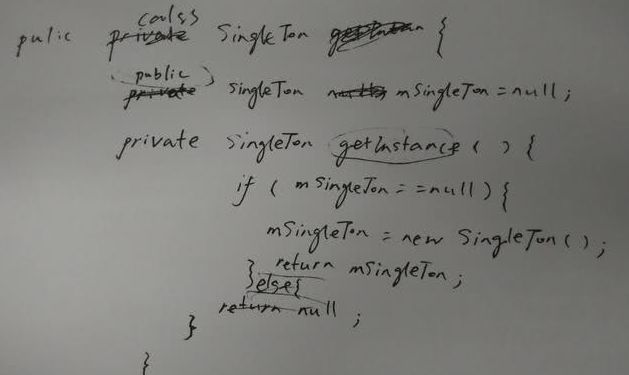 pulic calss SingleTon {
public singleTon mSingleTon = null;
private singleTon getInstance ( ) {
if ( mSingleTon == null ) {
mSingleTon = new SingleTon ( ) ;
return mSingleTon ;
} else {
return null ;
}
}